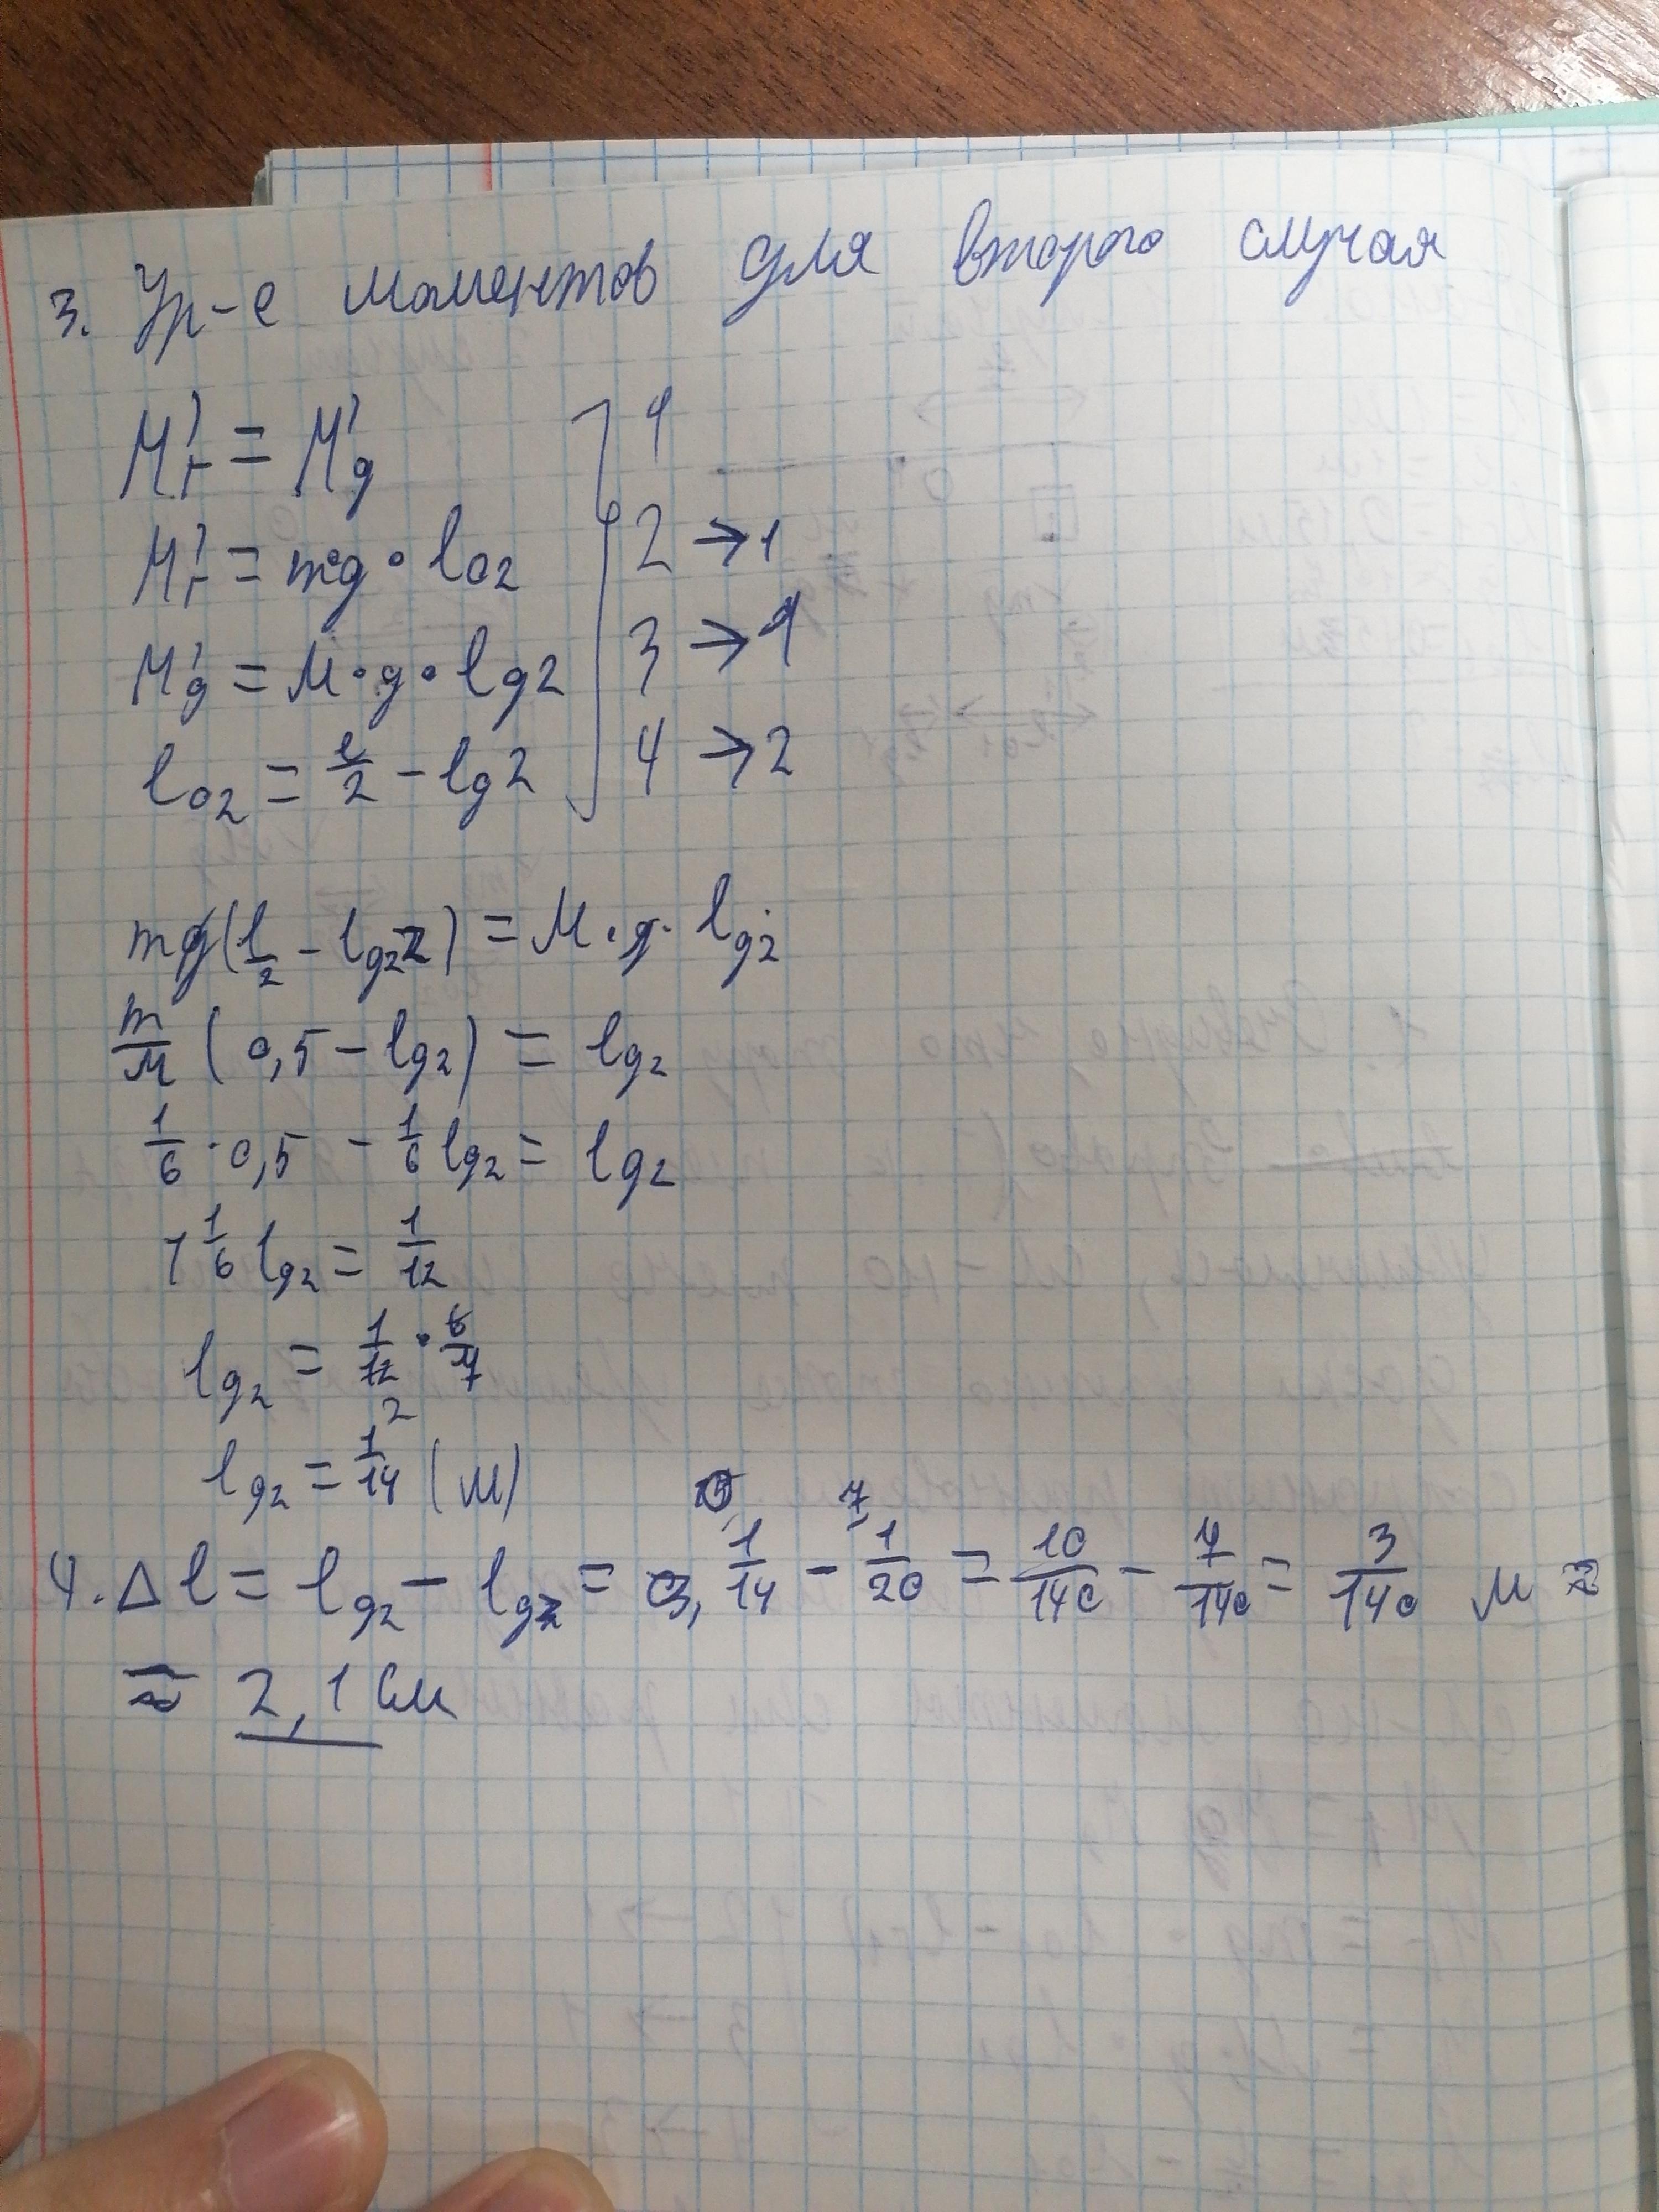 3. Ур-е моментов для второго случая
M'г = M'д } 1
M'г = mg · lо2 2 → 1
M'д = M · g · lд2 3 → 1
lо2 = l/2 - lд2 4 → 2
mg(l/2 - lд2) = M · g · lд2
m/M (0,5 - lд2) = lд2
1/6 · 0,5 - 1/6 lд2 = lд2
1 1/6 lд2 = 1/12
lд2 = 1/12 · 6/7
2
lд2 = 1/14 (м)
7,
4. Δl = lд2 - lд2 = 1/14 - 1/20 = 10/140 - 7/140 = 3/140 м ≈
≈ 2,1 см